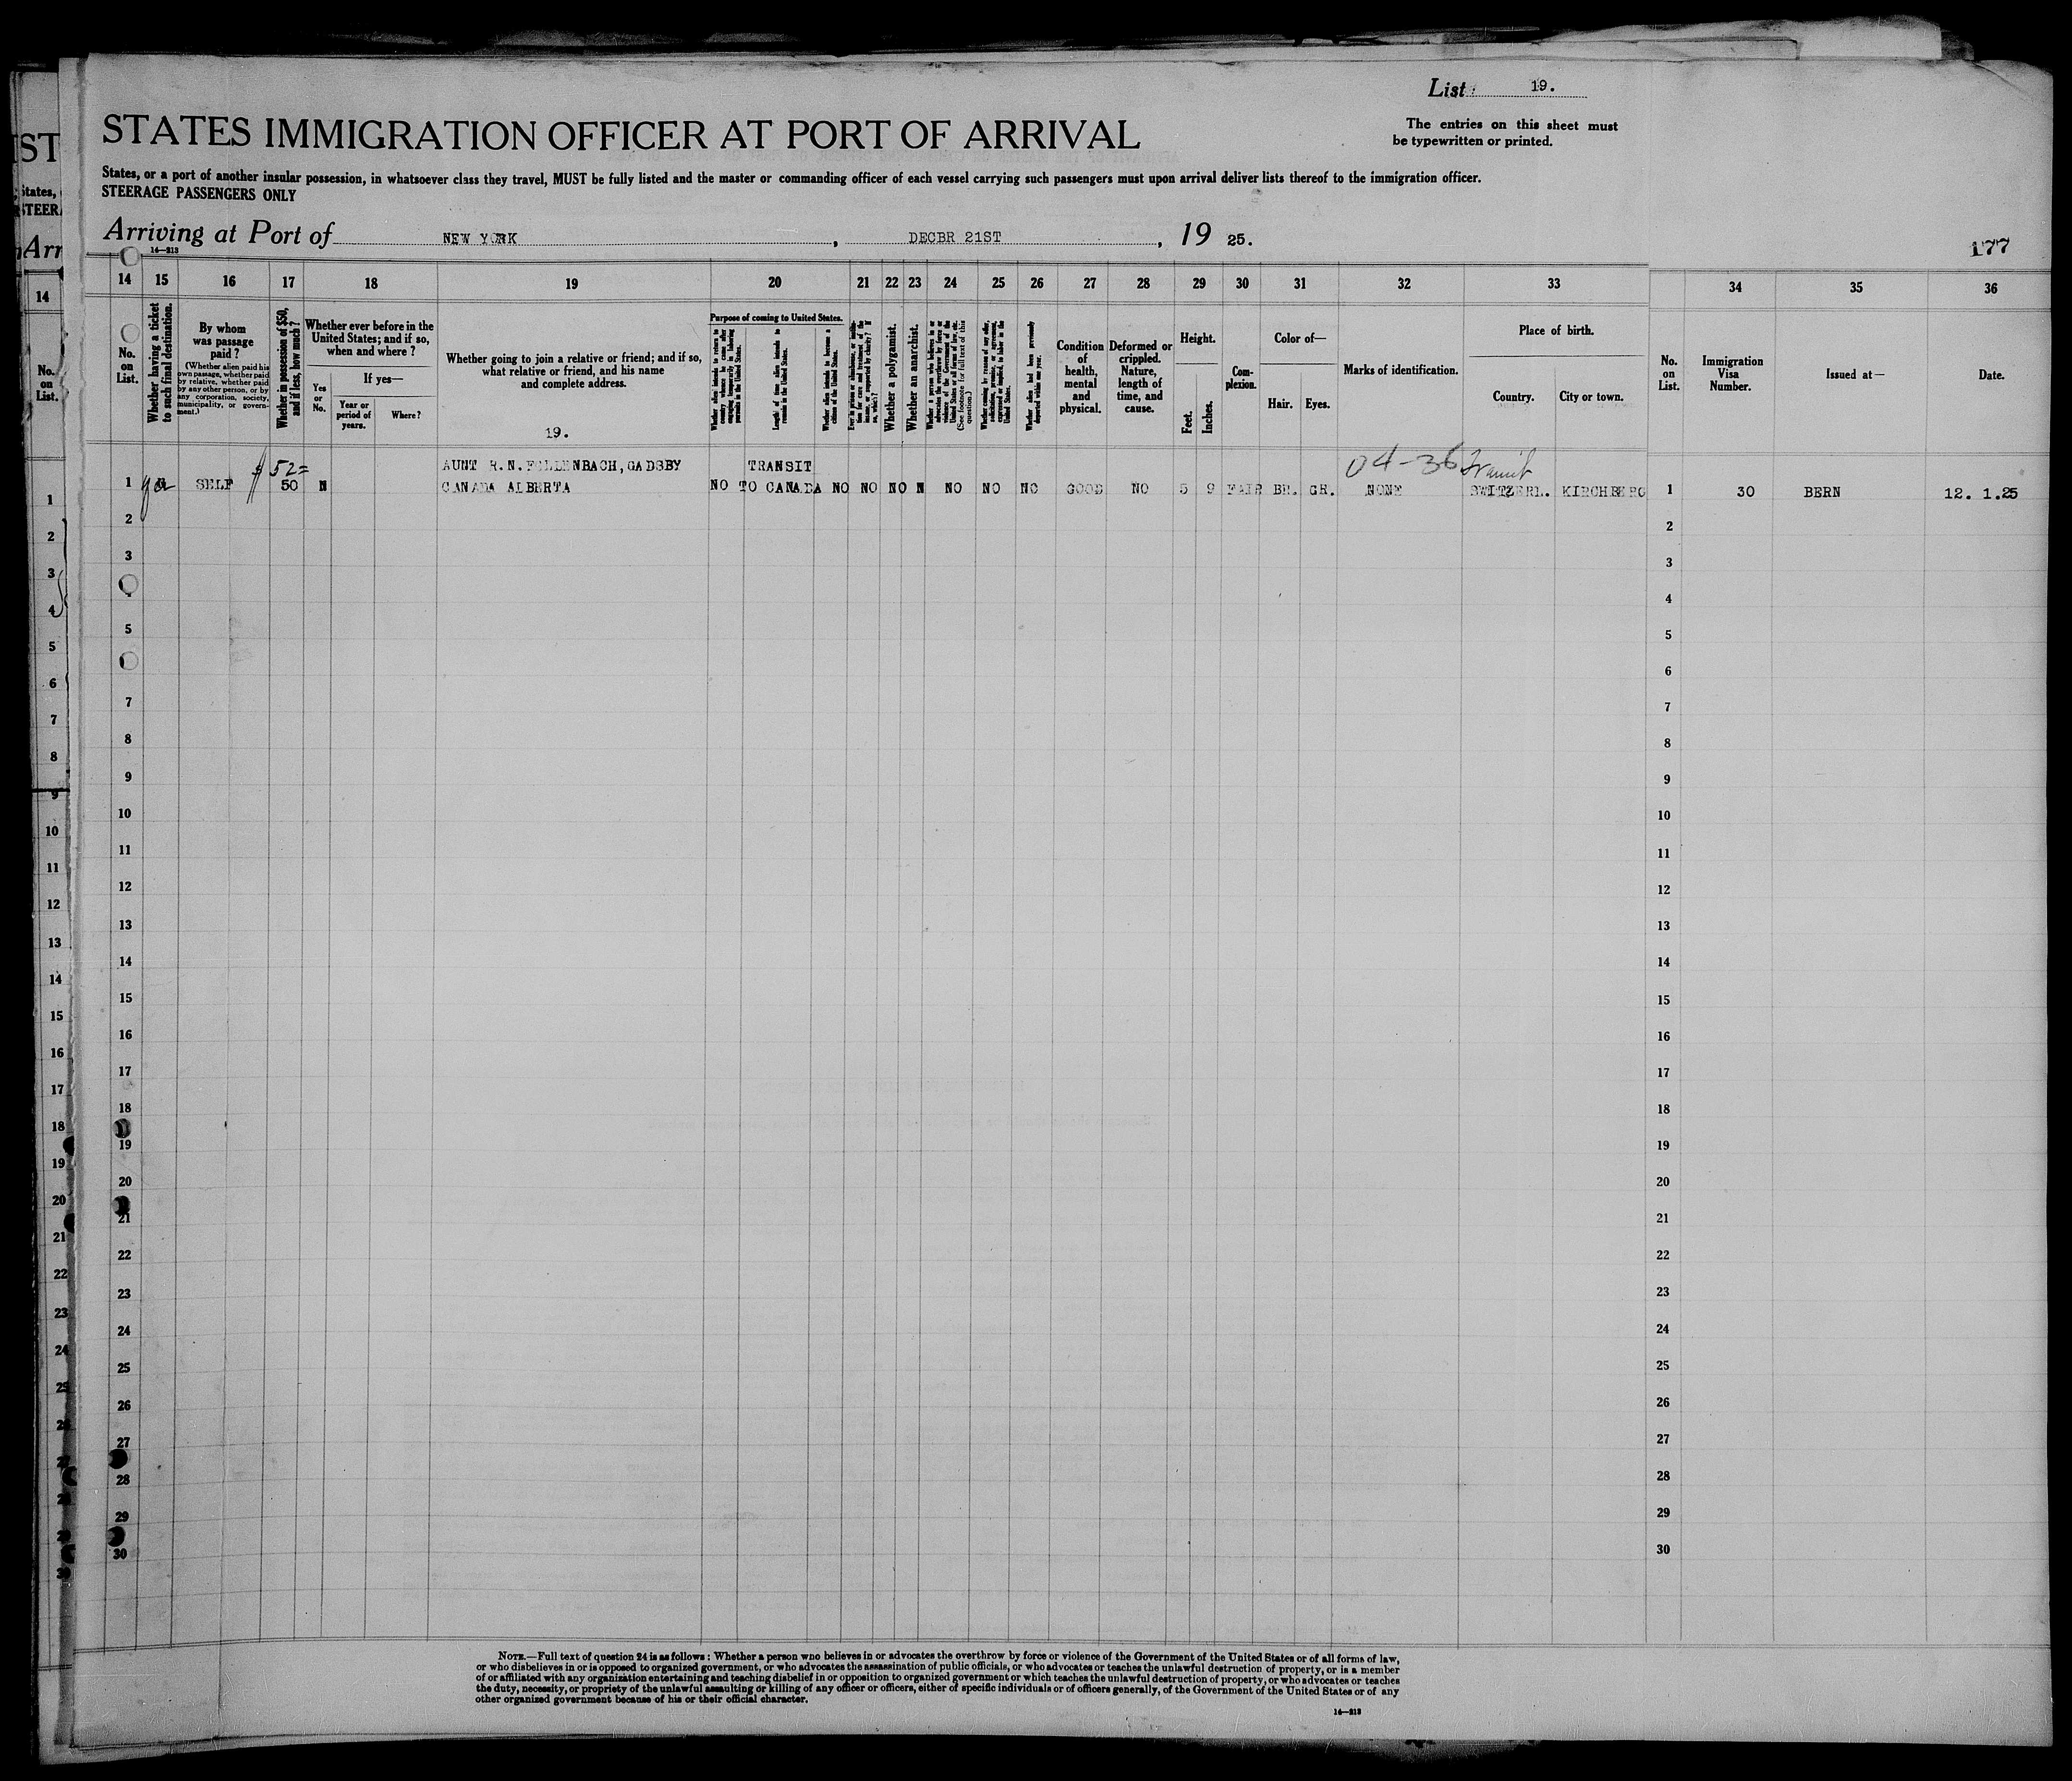 List 19.
STATES IMMIGRATION OFFICER AT PORT OF ARRIVAL
The entries on this sheet must
be typewritten or printed.
States, or a port of another insular possession, in whatsoever class they travel, MUST be fully listed and the master or commanding officer of each vessel carrying such passengers must upon arrival deliver lists thereof to the immigration officer.
STEERAGE PASSENGERS ONLY
Arriving at Port of NEW YORK, DECBR 21ST, 19 25.
14—213
177
14 15 16 17 18 19 20 21 22 23 24 25 26 27 28 29 30 31 32 33 34 35 36
No. on List.
Whether having a ticket to such final destination.
By whom was passage paid?
(Whether alien paid his own passage, whether paid by relative, whether paid by any other person, or by any corporation, society, municipality, or government.)
Whether in possession of $50, and if less, how much?
Whether ever before in the United States; and if so, when and where?
Yes or No.
If yes—
Year or period of years.
Where?
Whether going to join a relative or friend; and if so, what relative or friend, and his name and complete address.
19.
Purpose of coming to United States.
Whether alien intends to return to country whence he came after engaging temporarily in laboring pursuits in the United States.
Length of time alien intends to remain in the United States.
Whether alien intends to become a citizen of the United States.
Ever in prison or almshouse, or institution for care and treatment of the insane, or supported by charity? If so, which?
Whether a polygamist.
Whether an anarchist.
(See footnote for full text of this question.)
Whether alien had been previously deported within one year.
Condition of health, mental and physical.
Deformed or crippled. Nature, length of time, and cause.
Height.
Feet.
Inches.
Complexion.
Color of—
Hair.
Eyes.
Marks of identification.
Place of birth.
Country.
City or town.
No. on List.
Immigration Visa Number.
Issued at—
Date.
$ 52= AUNT R.N.FOLLENBACH,GADSBY TRANSIT 04-36 Transit
1 SELF 50 N CANADA ALBERTA NO TO CANADA NO NO NO N NO NO NO GOOD NO 5 9 FAIR BR. GR. NONE SWITZERL. KIRCHBERG 1 30 BERN 12. 1.25
2 2
3 3
4
5 5
6
7 7
8 8
9 9
10 10
11 11
12 12
13 13
14 14
15 15
16 16
17 17
18 18
19 19
20 20
21 21
22 22
23 23
24 24
25 25
26 26
27 27
28 28
29 29
30 30
NOTE.—Full text of question 24 is as follows: Whether a person who believes in or advocates the overthrow by force or violence of the Government of the United States or of all forms of law,
or who disbelieves in or is opposed to organized government, or who advocates the assassination of public officials, or who advocates or teaches the unlawful destruction of property, or is a member
of or affiliated with any organization entertaining and teaching disbelief in or opposition to organized government or which teaches the unlawful destruction of property, or who advocates or teaches
the duty, necessity, or propriety of the unlawful assaulting or killing of any officer or officers, either of specific individuals or of officers generally, of the Government of the United States or of any
other organized government because of his or their official character.
14—213